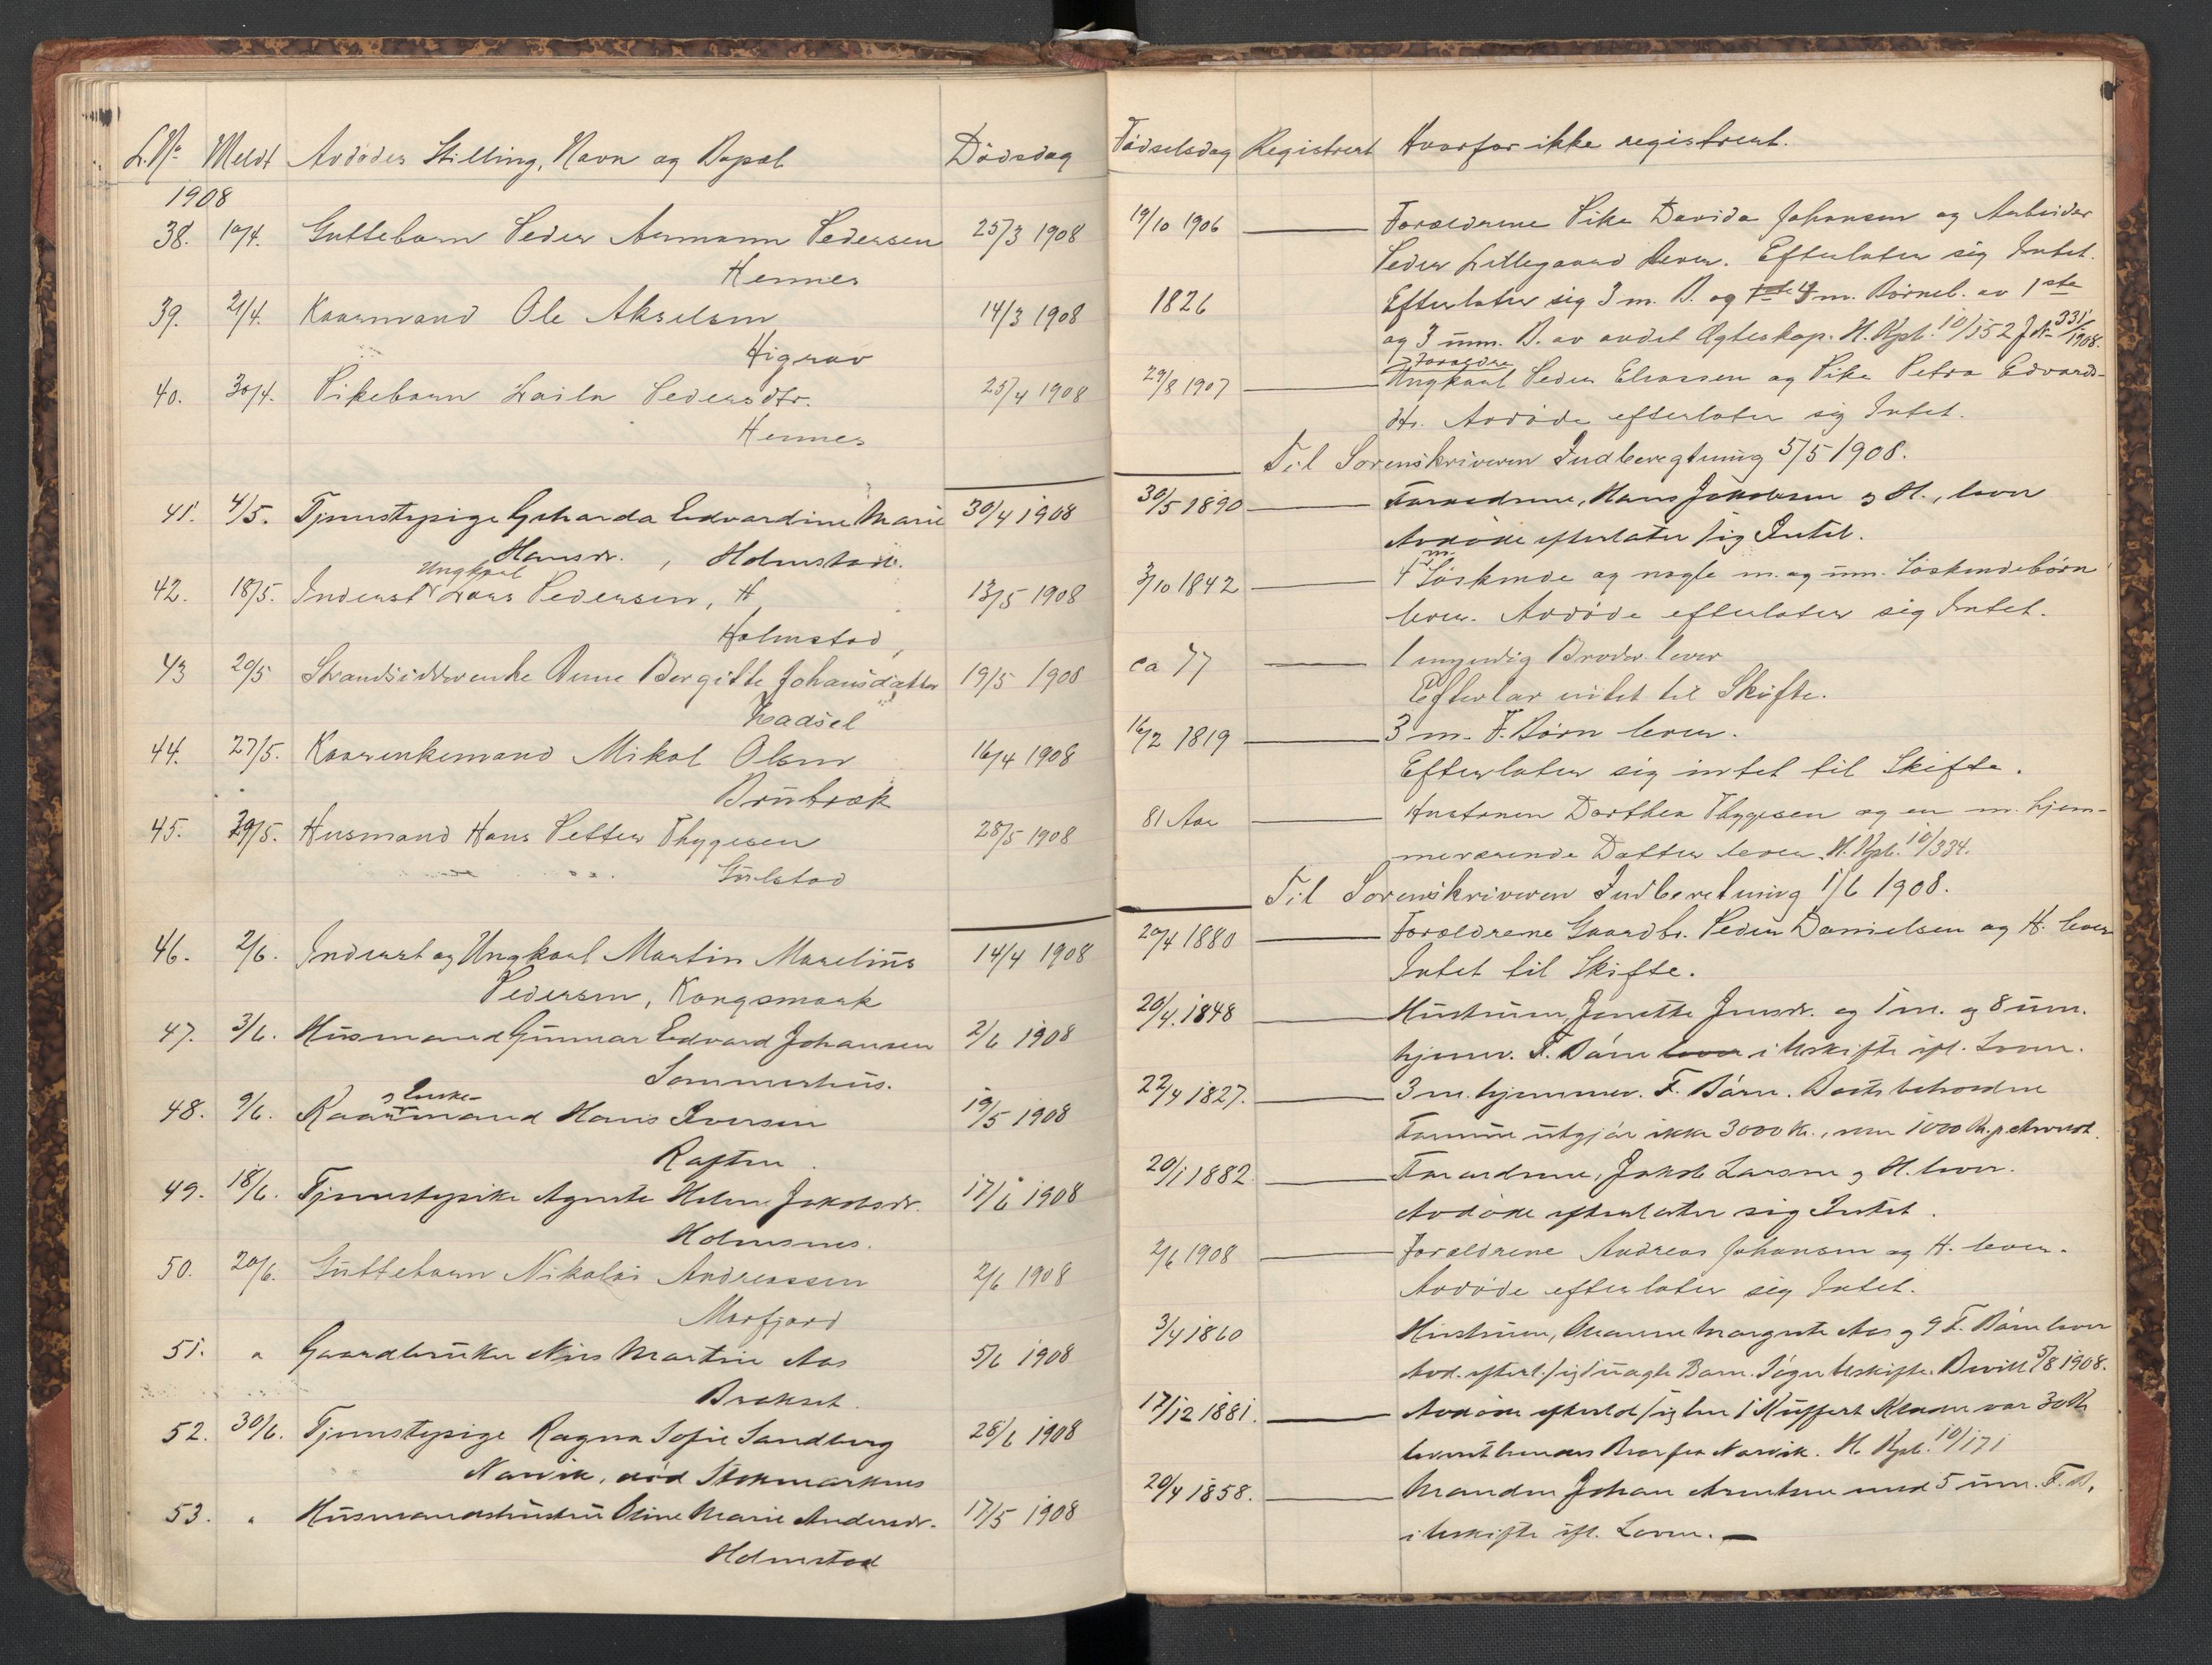 L.No Meldt Avdødes Stilling, Navn og Bopæl Dødsdag
1908
38. 10/4. Guttebarn Peder Armann Pedersen 25/3 1908
Hennes
39. 21/4. Kaarmand Ole Akselsen 14/3 1908
Higrav
40. 30/4. Pikebarn Laila Pedersdtr. 25/4 1908
Hennes
41. 4/5. Tjenestepige Geharda Edvardine Marie 30/4 1908
Hansdr., Holmstad.
Ungkarl
42. 18/5. Inderst Lars Pedersen, H 13/5 1908
Holmstad,
43 20/5 Strandsidderenke Anne Bergitte Johansdatter 19/5 1908
Hadsel
44. 27/5. Kaarenkemand Mikal Olsen 16/4 1908
Brubræk
45. 29/5. Husmand Hans Petter Thygesen 28/5 1908
Gulstad
46. 2/6. Inderst og Ungkarl Martin Marelius 14/4 1908
Pedersen, Kongsmark
47. 3/6. Husmand Gunnar Edvard Johansen 2/6 1908
Sommerhus.
og Enke-
48. 9/6. Kaarmand Hans Iversen 19/5 1908
Raften.
49. 18/6. Tjenestepike Agnete Helene Jakobsdr. 17/6 1908
Holmsnes.
50. 20/6. Guttebarn Nikolai Andreassen 2/6 1908
Morfjord
51. " Gaardbruker Nils Martin Aas 5/6 1908
Brokset.
52. 30/6. Tjenestepige Ragna Sofie Sandberg 28/6 1908
Narvik, død Stokmarknes
53. " Husmandshustru Oline Marie Andersdr. 17/5 1908
Holmstad
Fødselsdag Registrert Hvorfor ikke registrert.
19/10 1906 Forældrene Pike Davida Johansen og Arbeider
Peder Lillegaard lever. Efterlater sig Intet.
1826 Efterlater sig 3 m. B. og 4 m. Børneb. av 1ste
og 3 um. B. av andet Ægteskap. H. Kpl. 10/152 J.No 331/1908.
Forældre
29/8 1907 Ungkarl Peder Eliassen og Pike Petra Edvards-
dtr. Avdøde efterlater sig Intet.
Til Sorenskriveren Indberegtning 5/5 1908.
30/5 1890 Forældrene, Hans Jakobsen og H., lever
Avdøde efterlater sig Intet.
m.
3/10 1842 4 Søskende og nogle m. og um. Søskendebørn
lever. Avdøde efterlater sig Intet.
ca 77 1 myndig Broder lever
Efterlar intet til Skifte.
16/2 1819 3 m. F. Børn lever.
Efterlater sig intet til Skifte.
81 Aar Hustruen Dorthea Thygesen og en m. hjem-
meværende Datter lever. H. Kpl. 10/334.
Til Sorenskriveren Indberetning 1/6 1908.
20/4 1880 Forældrene Gaardbr. Peder Danielsen og H. lever
Intet til Skifte.
20/4. 1848 Hustruen, Janette Jensdr. og 1 m. og 8 um.
hjemv. F. Børn lever i Uskifte ifl. Loven.
22/4 1827. 3 m. hjemmev. F. Børn. Boets beholdne
Formue utgjør ikke 3000 Kr., men 1000 Kr. p. Arvelod.
20/1 1882. Forældrene, Jakob Larsen og H. lever.
Avdøde efterlater sig Intet.
2/6 1908 Forældrene Andreas Johansen og H. lever.
Avdøde efterlater sig Intet.
3/4 1860 Hustruen, Margrete Aas og 9 F. Børn lever
Avd. efterl. sig Barn. Uskifte. Bevill. 5/8 1908.
17/12 1881. Avdøde sig 1 Kuffert Klæder var 30 Kr
Bror fra Narvik. H. Kpl. 10/171
20/4 1858. Manden Johan Arntsen med 5 um. F. B.
i Uskifte ifl. Loven.